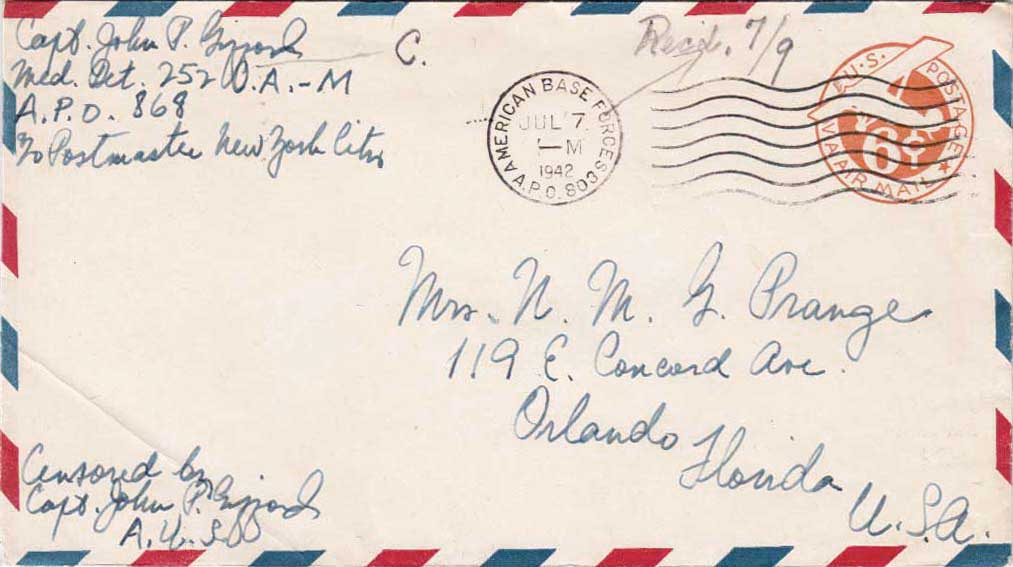 Capt. John P. Gifford
Med. Det. 252 Q.A.-M
A.P.O. 868
℅ Postmaster New York City
C.
Rec'd. 7/9
AMERICAN BASE FORCES
JUL 7
1 - M
1942
A.P.O. 803
U.S. POSTAGE
6¢
VIA AIR MAIL
Mrs. N. M. G. Prange
119 E. Concord Ave.
Orlando
Florida
U.S.A.
Censored by
Capt. John P. Gifford
A.U.S.